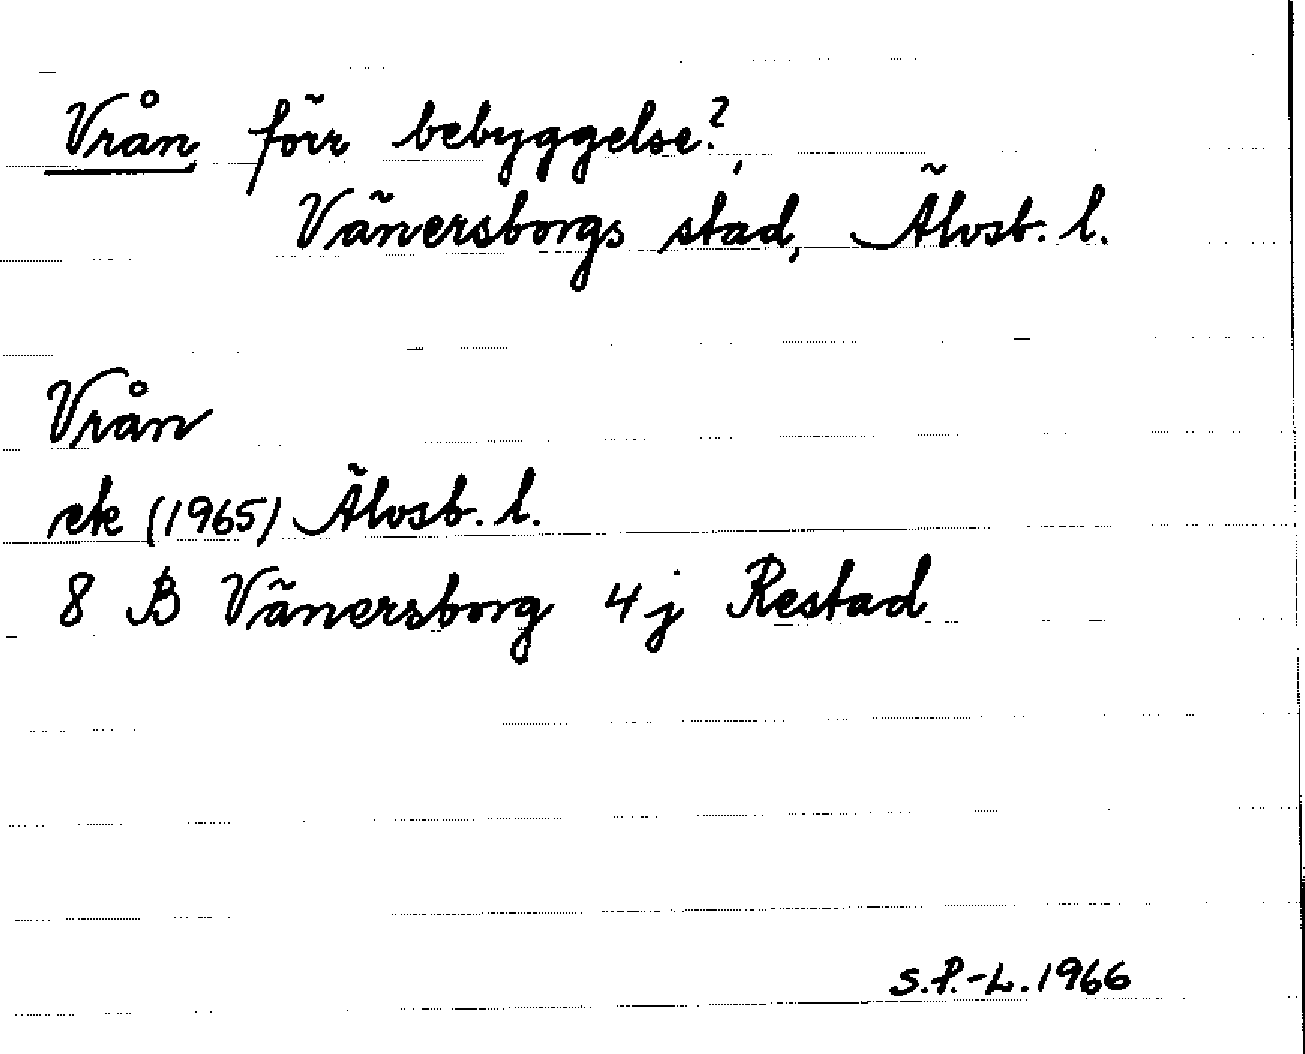 Vrån förr bebyggelse?,
Vänersborgs stad, Älvsb. l.
Vrån
ek (1965) Älvsb. l.
8 B Vänersborg 4 j Restad
S.P.-L. 1966